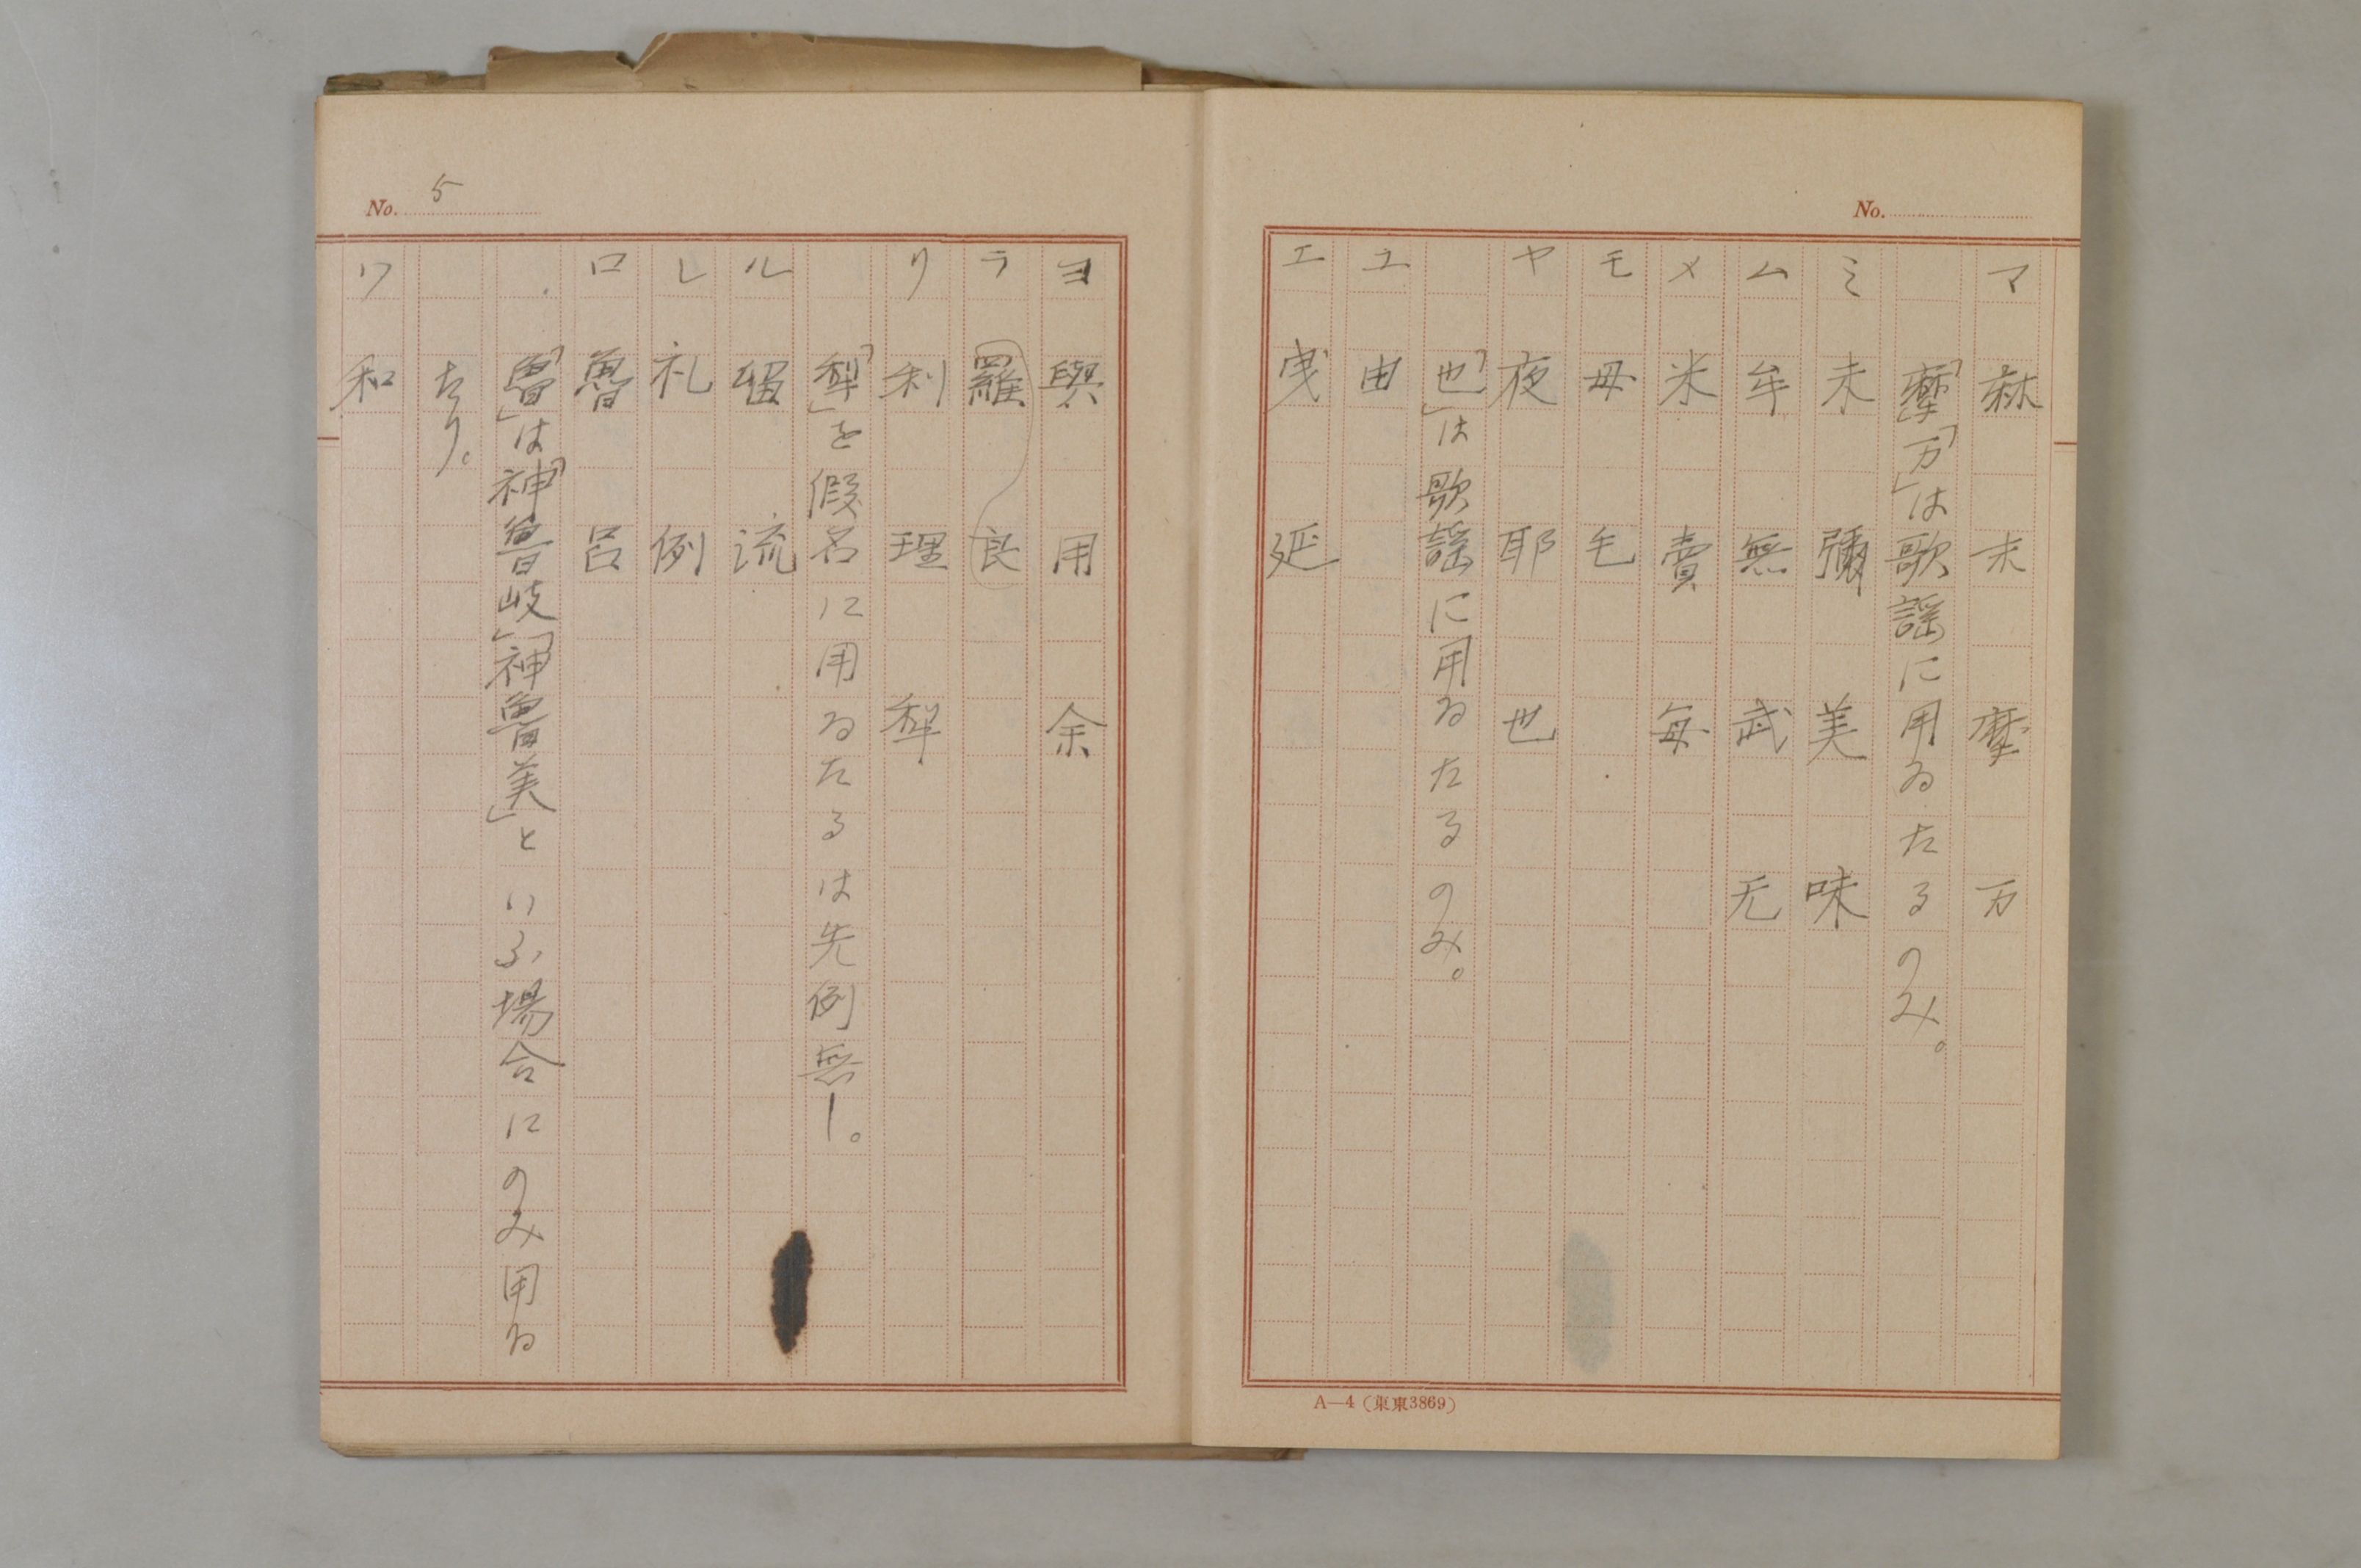 No.
マ 麻 末 摩 万
「摩」「万」は歌謡に用ゐたるのみ。
ミ 未 彌 美 味
ム 牟 無 武 无
メ 米 賣 毎
モ 毋 毛
ヤ 夜 耶 也
「也」は歌謡に用ゐたるのみ。
ユ 由
エ 曳 延
A—4(東東3869)
No. 5
ヨ 與 用 余
ラ 羅 良
リ 利 理 犂
「犂」を假名に用ゐたるは先例無し。
ル 留 流
レ 礼 例
ロ 魯 呂
「魯」は「神魯岐」「神魯美」といふ場合にのみ用ゐ
たり。
ワ 和